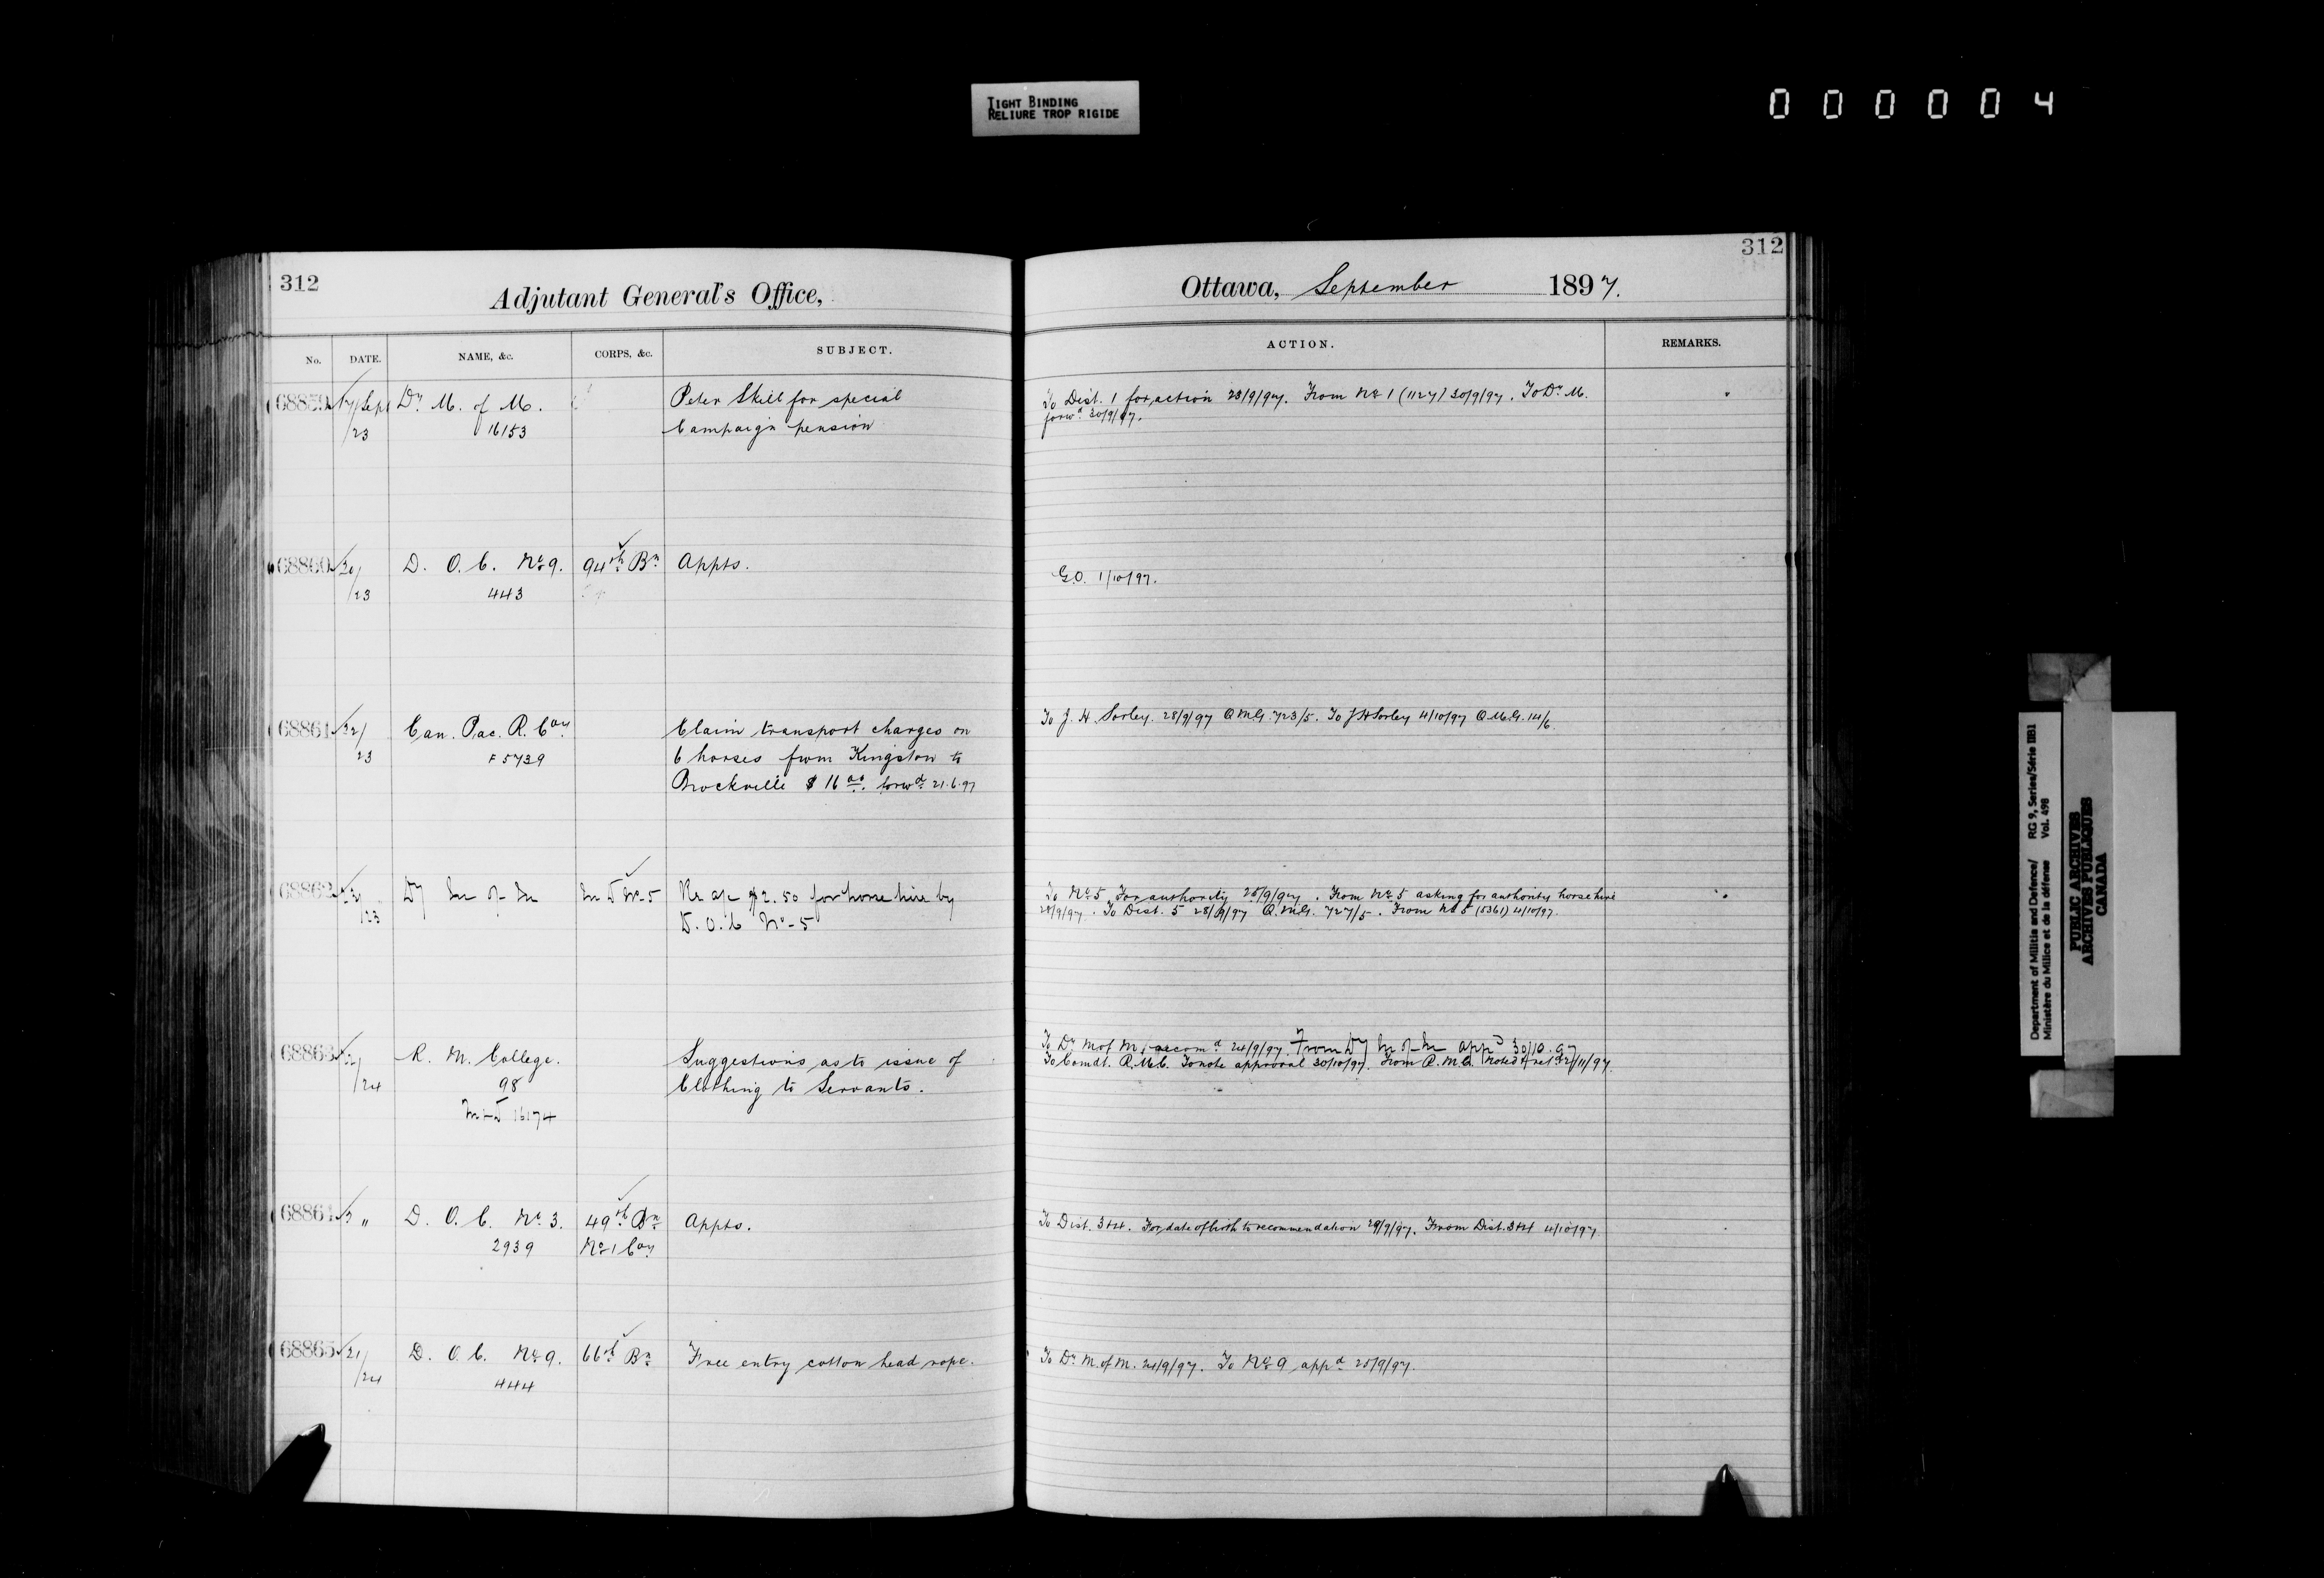 TIGHT BINDING
RELIURE TROP RIGIDE
000004
312
Adjutant General's Office,
No. DATE. NAME, &c. CORPS, &c. SUBJECT.
68859 17/Sept Dy M. of M. Peter Skill for special
/23 16153 Campaign pension
68860 20/ D. O. C. No 9. 94th Bn Appts.
/23 443
68861 22/ Can. Pac. R. Coy Claim transport charges on
23 F 5739 6 horses from Kingston to
Brockville $ 16.00. forwd 21.6.97
68862 /23 Dy M of M M D No-5 Re a/c $2.50 for horse hire by
D. O. C No-5
68863 R. M. College. Suggestions as to issue of
/24 98 Clothing to Servants.
M+D 16174
68864 " D. O. C. No 3. 49th Bn Appts.
2939 No 1 Coy
68865 21/ D. O. C. No 9. 66th Bn Free entry cotton head rope.
/24 444
312
Ottawa, September 1897.
ACTION. REMARKS.
To Dist. 1 for action 28/9/97. From No 1 (1127) 30/9/97. To Dy M.
forwd 30/9/97.
G.O. 1/10/97.
To J. H. Sorley. 28/9/97 Q.M.G. 723/5. To J H Sorley 4/10/97 Q.M.G. 14/6.
To No 5 For authority 25/9/97. From No 5 asking for authority horse hire
28/9/97. To Dist. 5 28/9/97 Q.M.G. 727/5. From No 5 (5361) 4/10/97.
To Dy M of M recomd 24/9/97. From Dy M of M appd 30/10.97
To Comdt. R.M.C. To note approval 30/10/97. From R.M.C. Noted & retd 2/11/97.
To Dist. 3+4. For date of birth to recommendation 29/9/97. From Dist. 3+4 4/10/97.
To Dy M. of M. 24/9/97. To No 9 appd 25/9/97.
Department of Militia and Defence/ RG 9, Series/Série IIB1
Ministère du Milice et de la défense Vol. 498
PUBLIC ARCHIVES
ARCHIVES PUBLIQUES
CANADA